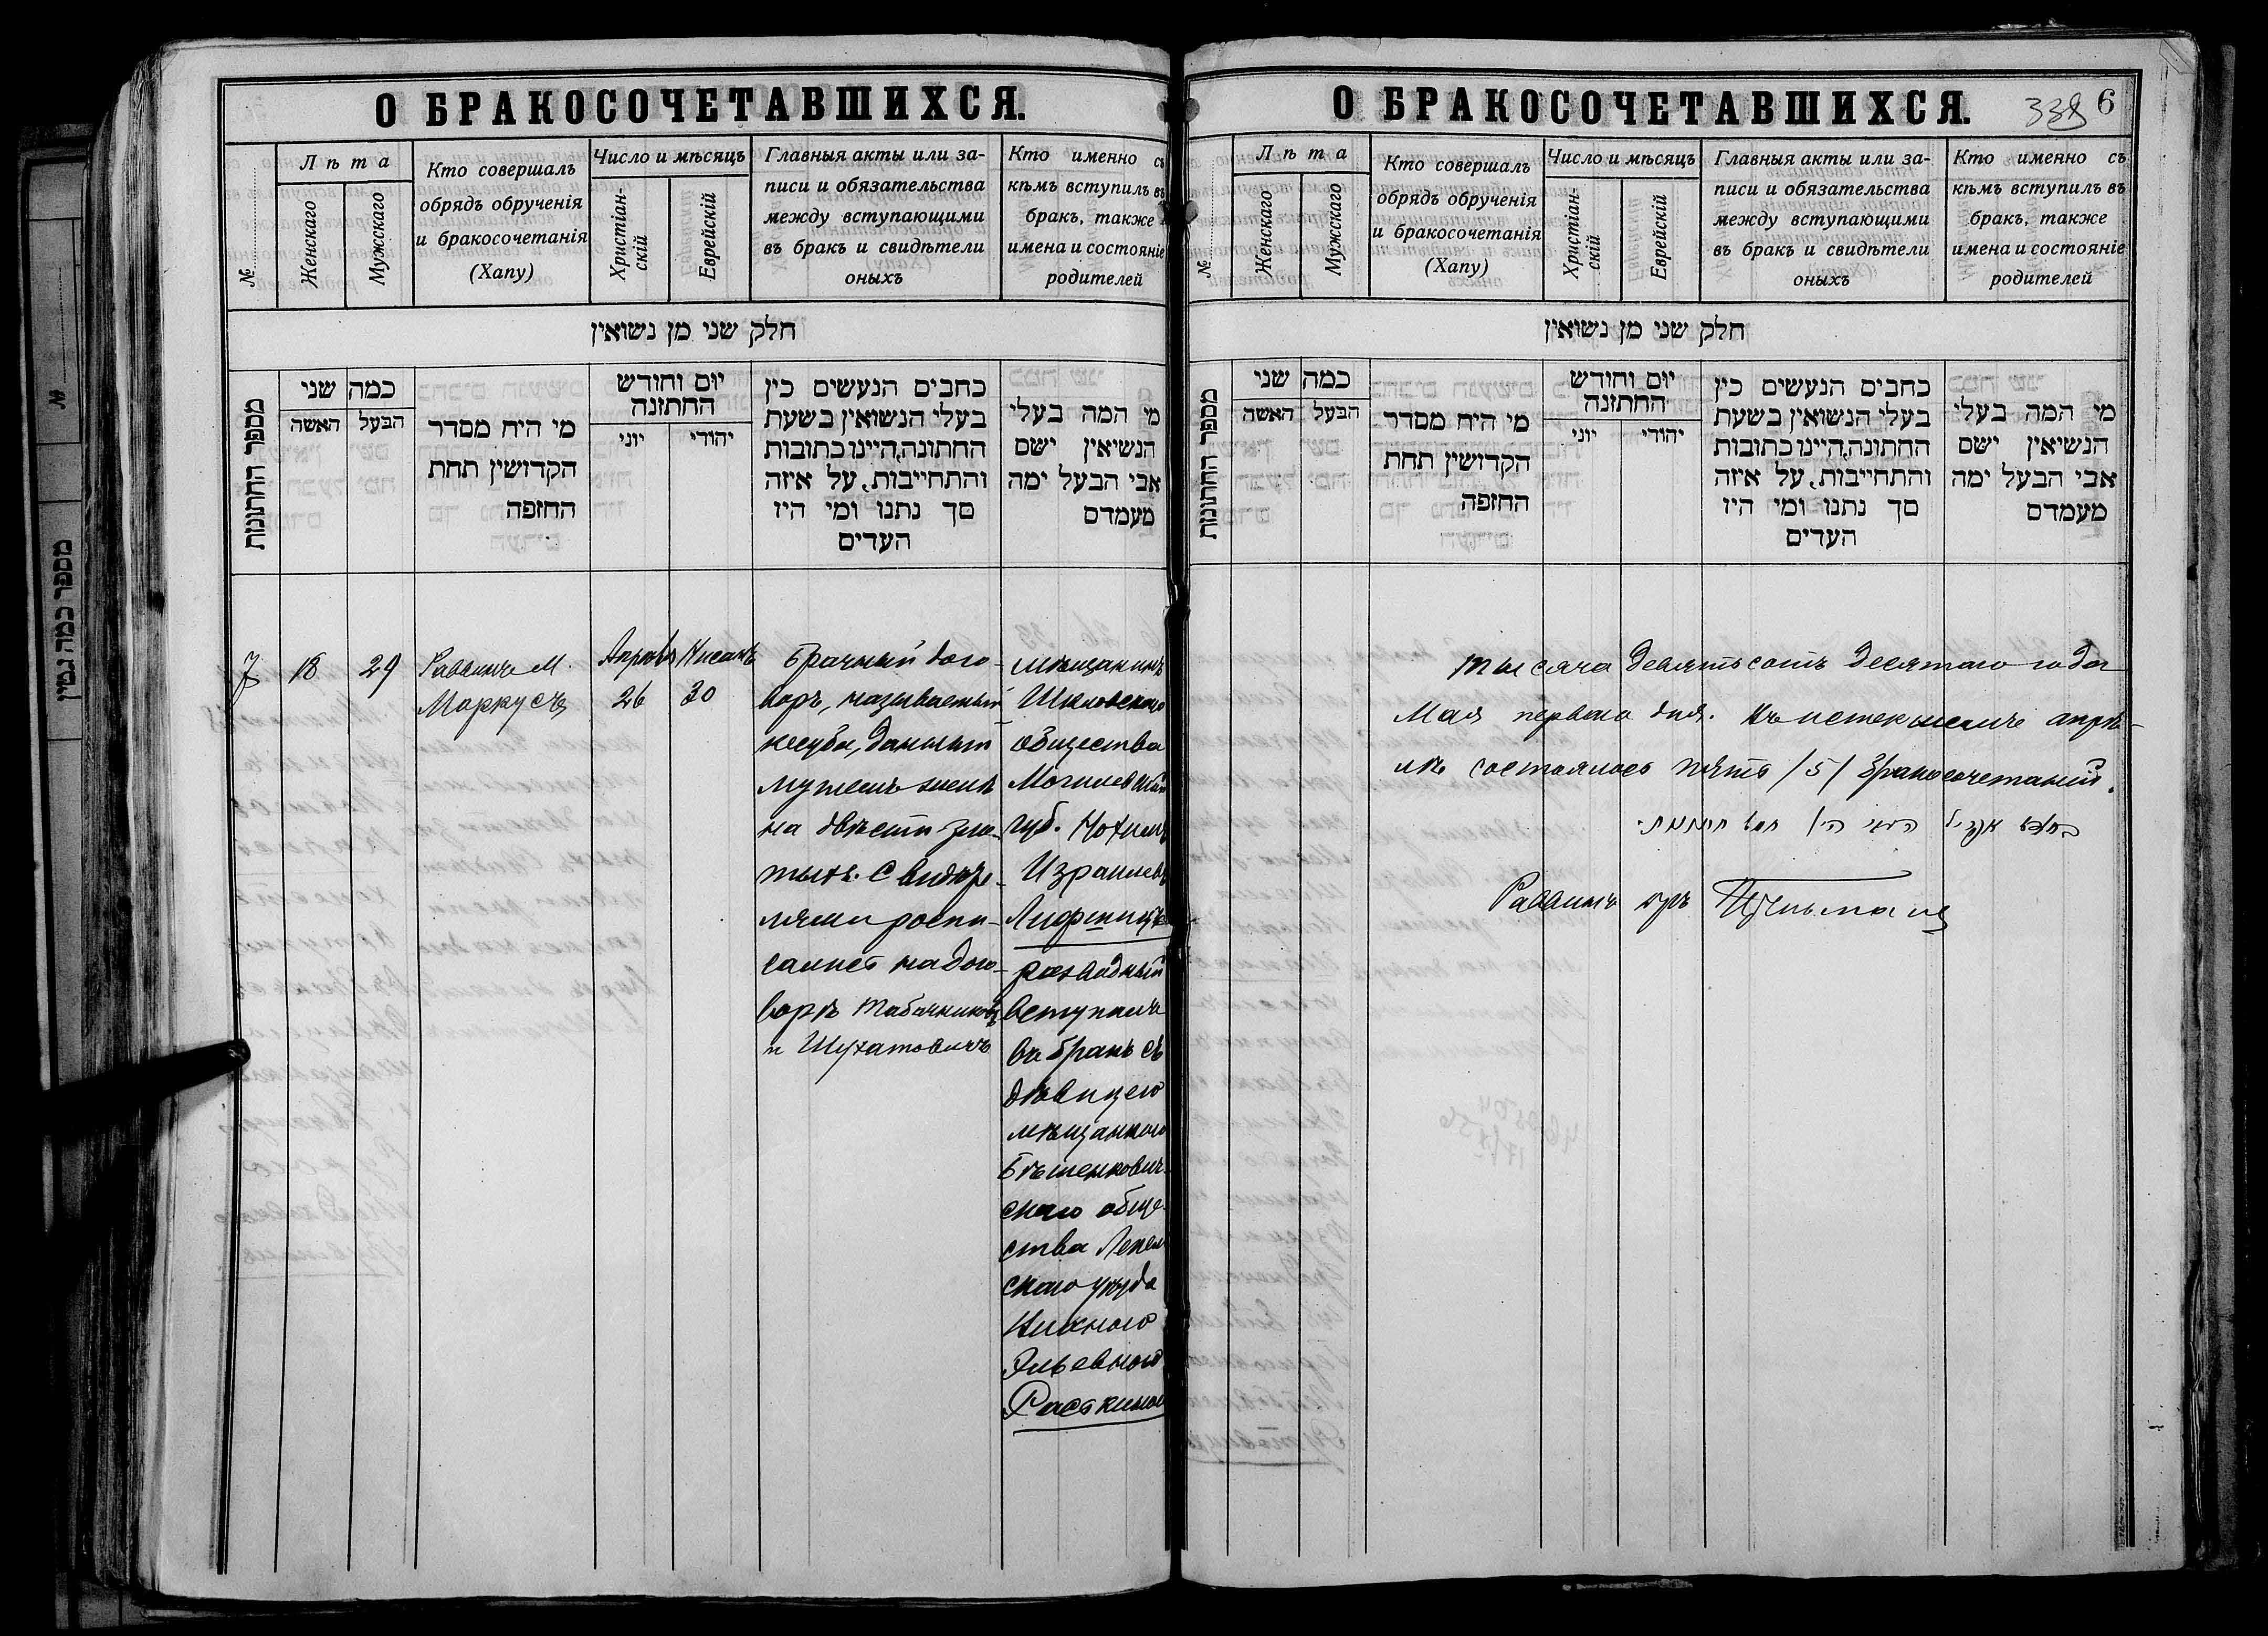 О БРАКОСОЧЕТАВШИХСЯ.
№
Лѣта
Женскаго
Мужскаго
Кто совершалъ
обрядъ обрученія
и бракосочетанія
(Хапу)
Число и мѣсяцъ
Христіан-
скій
Еврейскій
Главныя акты или за-
писи и обязательства
между вступающими
въ бракъ и свидѣтели
оныхъ
Кто именно съ
кѣмъ вступилъ въ
бракъ, также
имена и состояніе
родителей
חלק שני מן נשואין
מספר החתונות
כמה שני
האשה
הבעל
מי היח מסדר
הקדושין תחת
החופה
יום וחודש
החתונה
יוני
יהודי
כתבים הנעשים כין
בעלי הנשואין בשעת
החתונה, היינו כתובות
והתחייבות, על איזה
סך נתנו ומי היו
העדים
מי המה בעלי
הנשיאין ישם
אבי הבעל ימה
מעמדם
7
18
29
Раввинъ М.
Маркусъ
Апрѣль
26
Нисанъ
30
Брачный дого-
воръ, называемый
кесуба, данный
мужемъ женѣ
на двѣсти зло-
тыхъ. Свидѣте-
лями роспи-
сались на дого-
ворѣ Табачниковъ
и Шухатовичъ
мѣщанинъ
Шкловскаго
общества
Могилевской
губ.
Израилевъ
Лифшицъ
разводный
вступилъ
въ бракъ съ
дѣвицею
мѣщанкою
Бѣшенкович-
скаго обще-
ства Лепель
скаго уѣзда
Эльевною
Раскиною
О БРАКОСОЧЕТАВШИХСЯ.
6
№
Лѣта
Женскаго
Мужскаго
Кто совершалъ
обрядъ обрученія
и бракосочетанія
(Хапу)
Число и мѣсяцъ
Христіан-
скій
Еврейскій
Главныя акты или за-
писи и обязательства
между вступающими
въ бракъ и свидѣтели
оныхъ
Кто именно съ
кѣмъ вступилъ въ
бракъ, также
имена и состояніе
родителей
חלק שני מן נשואין
מספר החתונות
כמה שני
האשה
הבעל
מי היח מסדר
הקדושין תחת
החופה
יום וחודש
החתונה
יוני
יהודי
כתבים הנעשים כין
בעלי הנשואין בשעת
החתונה, היינו כתובות
והתחייבות, על איזה
סך נתנו ומי היו
העדים
מי המה בעלי
הנשיאין ישם
אבי הבעל ימה
מעמדם
Тысяча девятьсотъ десятаго года
Мая перваго дня. Въ истекшемъ апрѣ-
лѣ состоялось пять /5/ бракосочетаній.
Раввинъ